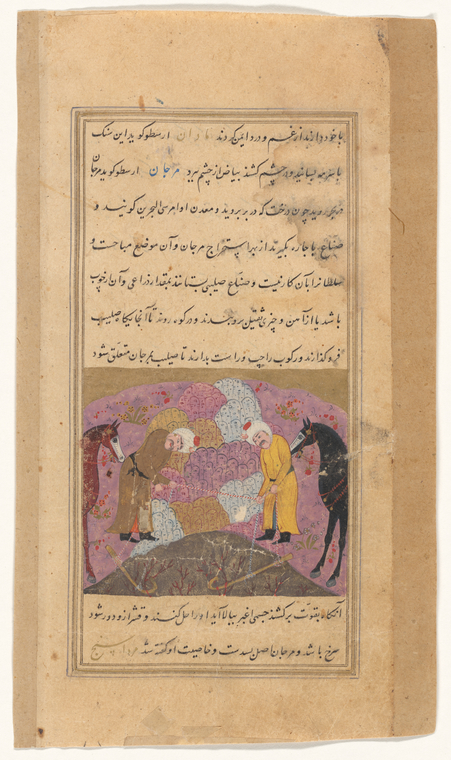 با خود دارند از غم و درد ایمن کردند ماران ارسطو کوید این سنک
با سرمه بسایند و در چشم کشند بیاض از چشم ببرد مرجان ارسطو کوید مرجان
در بحر روید چون درخت که در بر بروید و معدن او مرسی البحرین کویند و
صناع با جاره بکیرند از برای استخراج مرجان و آن موضع مباحست و
سلطانرا بآن کار نیست و صناع صلیبی بستانند بمقدار ذراعی و آن از چوب
باشد یا از آهن و چیزی ثقیل برو بندند و در کوه روند تا آنجا یکاه صلیب
فرو کذارند و رکوب را چپ و راست بدارند تا صلیب بمرجان متعلق شود
آنکاه بقوت برکشند جسمی اغبر ببالا آید او را حل کنند و قشر ازو دور شود
سرخ باشد و مرجان اصل بسدست و خاصیت او کفته شد